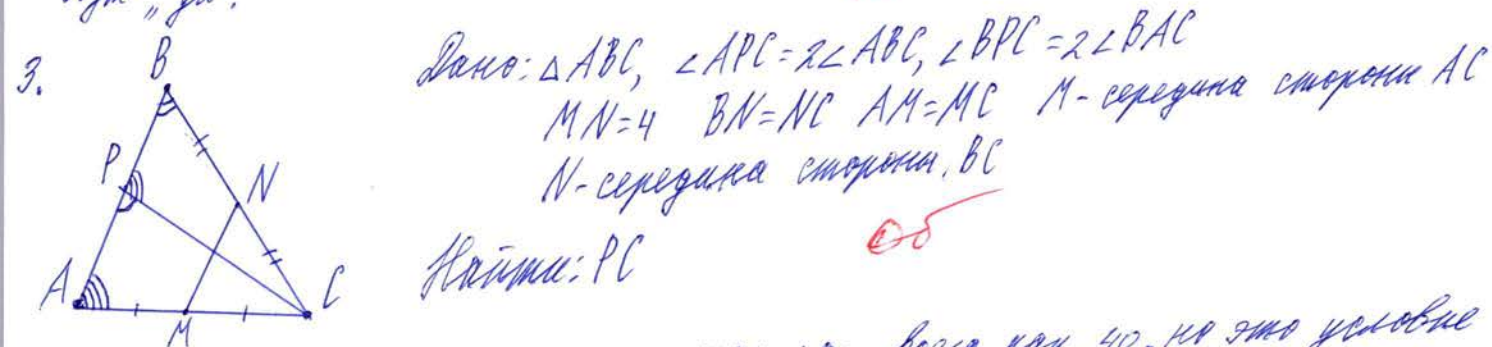 3.
Дано: △ABC, ∠APC=2∠ABC, ∠BPC=2∠BAC
MN=4 BN=NC AM=MC M-середина стороны AC
N-середина стороны BC
Найти: PC
0б
B
P
N
A
M
C
но это условие